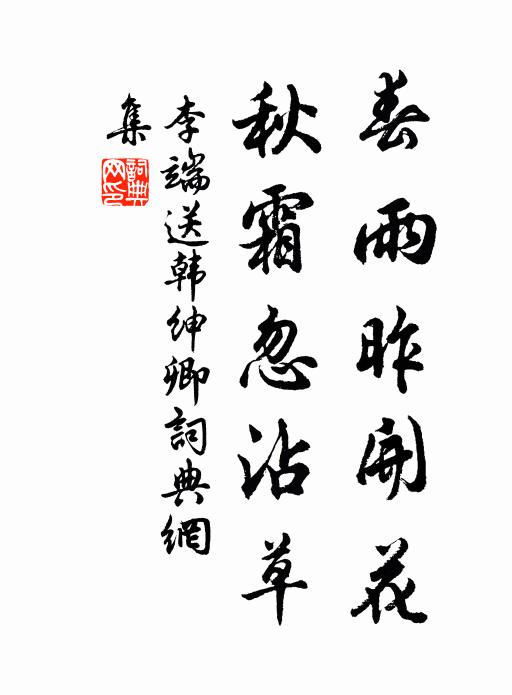 春雨昨開花
秋霜忽沾草
李端送韩紳卿詞典網
集
詞典
网印